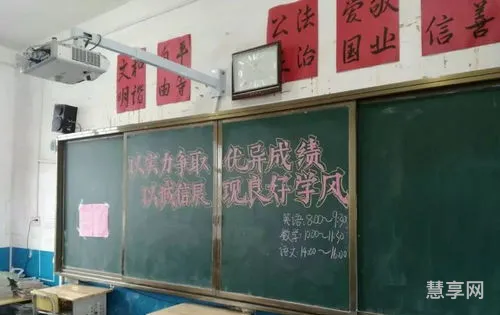 文明
和谐
自由
平等
公正
法治
爱国
敬业
信
善
以实力争取 优异成绩
以诚信展 现良好学风
英语:8:00~9:30
数学:10:00~11:30
语文:14:00~16:00
慧享网